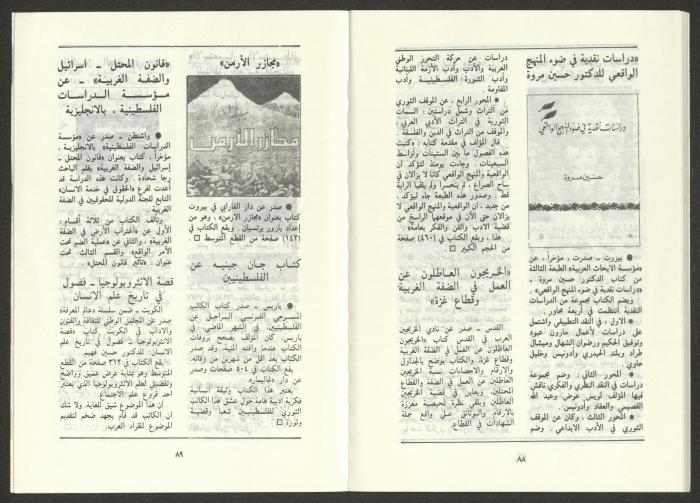 «دراسات نقدية في ضوء المنهج
الواقعي للدكتور حسين مروة
دراسات نقدية في ضوء المنهج الواقعي
حسين مروة
● بيروت ـ صدرت، مؤخراً، عن
«مؤسسة الابحاث العربية» الطبعة الثالثة
من كتاب الدكتور حسين مروة ـ
«دراسات نقدية في ضوء المنهج الواقعي».
ويضم الكتاب مجموعة من الدراسات
النقدية انتظمت في أربعة محاور.
● الاول: في النقد التطبيقي واشتمل
على دراسات لأعمال مارون عبود
وتوفيق الحكيم ورضوان الشهال وميشال
طراد وبلند الحيدري وأدونيس وخليل
حاوي
● المحور الثاني: وضم مجموعة
دراسات في النقد النظري والفكري ناقش
فيها المؤلف لويس عوض وعبد الله
القصيمي والعقاد وأدونيس.
● المحور الثالث: وكان عن الموقف
الثوري في الأدب الابداعي. وضم
دراسات عن حركة التحرر الوطني
العربية والأدب وأدب الأزمة اللبنانية
وأدب الثورة الفلسطينية وأدب
المقاومة.
● المحور الرابع، عن الموقف الثوري
من التراث وشمل دراستين: السمات
الثورية في التراث الأدبي العربي،
والموقف من التراث في الدين والفلسفة.
قال المؤلف في مقدمة كتابه: وكتبت
هذه الفصول ما بين الستينات وأواسط
السبعينات. وجاءت اليوم لتؤكد أن
الواقعية والمنهج الواقعي كانا لا يزالان في
ساح الصراع، لم ينحسرا ولم يلقيا الراية
قط. وصدور هذه الطبعة جاء ليؤكد،
من جديد، أن الواقعية والمنهج الواقعي لا
يزالان حتى الآن في موقعهما الراسخ من
قضية الادب والفن والفكر بعامة».
هذا، ويقع الكتاب في (٤٦٠) صفحة
من الحجم الكبير □
«الخريجون العاطلون عن
العمل في الضفة الغربية
وقطاع غزة»
القدس ـ صدر عن نادي الخريجين
العرب في القدس كتاب «الخريجون
العاطلون عن العمل في الضفة الغربية
وقطاع غزة. والكتاب يوضح بالجداول
والارقام والاحصاءات نسبة الخريجين
العاطلين عن العمل في الضفة والقطاع
المحتلين. ويعاين في قضية الخريجين
العاطلين ويلقي نظرة تلخيصية معززة
بالارقام والوثائق على واقع حملة
الشهادات في القطاع.
٨٨
«مجازر الأرمن»
مجازر الأرمن
● صدر عن دار الفارابي في بيروت
كتاب بعنوان «مجازر الارمن»، وهو من
إعداد بارور يرتسيان. ويقع الكتاب في
(١٤٢) صفحة من القطع المتوسط □
كتاب جان جينيه عن
الفلسطينيين
● باريس ـ صدر كتاب الكاتب
المسرحي الفرنسي الراحل عن
الفلسطينيين، في الشهر الماضي في
باريس. كان المؤلف يصحح بروفات
الكتاب عندما وافته المنية. وقد صدر
الكتاب بعد أقل من شهرين من وفاته.
يقع الكتاب في ٥٠٤ صفحات وصدر
عن دار «غاليمار».
يعتبر هذا الكتاب وثيقة انسانية
فكرية ادبية هامة حول عشق هذا الكاتب
الثوري للفلسطينيين شعباً وقضية
وثورة □
«قانون المحتل ـ اسرائيل
والضفة الغربية» ـ عن
مؤسسة الدراسات
الفلسطينية، بالانجليزية
● واشنطن ـ صدر عن «مؤسسة
الدراسات الفلسطينية» بالانجليزية،
مؤخراً، كتاب بعنوان «قانون المحتل ـ
إسرائيل والضفة الغربية» بقلم الباحث
رجا شحادة. وكانت هذه الدراسة قد
أعدت لفرع «الحقوق في خدمة الانسان»
التابع للجنة الدولية للحقوقيين في الضفة
الغربية.
وتألف الكتاب من ثلاثة أقسام:
الأول عن «اغتراب الأرض في الضفة
الغربية»، والثاني عن «عملية الضم تحت
الأمر الواقع» والقسم الثالث تحت
عنوان: «تأثير قانون المحتل».
قصة الانثروبولوجيا ـ فصول
في تاريخ علم الانسان
الكويت ـ ضمن سلسلة «عالم المعرفة»
صدر عن المجلس الوطني للثقافة والفنون
والآداب في الكويت كتاب «قصة
الانثروبولوجيا ـ فصول في تاريخ علم
الانسان. للدكتور حسين فهيم.
يقع الكتاب في ٣١٢ صفحة من القطع
المتوسط وهو بمثابة عرض عميق وواضح
وتفصيلي لعلم الانثروبولوجيا الذي يعتبر
احد فروع علم الاجتماع.
ان هذا الموضوع شيق للغاية ولا شك
ان الكاتب قد قام بجهد ضخم لتقديم
الموضوع للقراء العرب.
٨٩